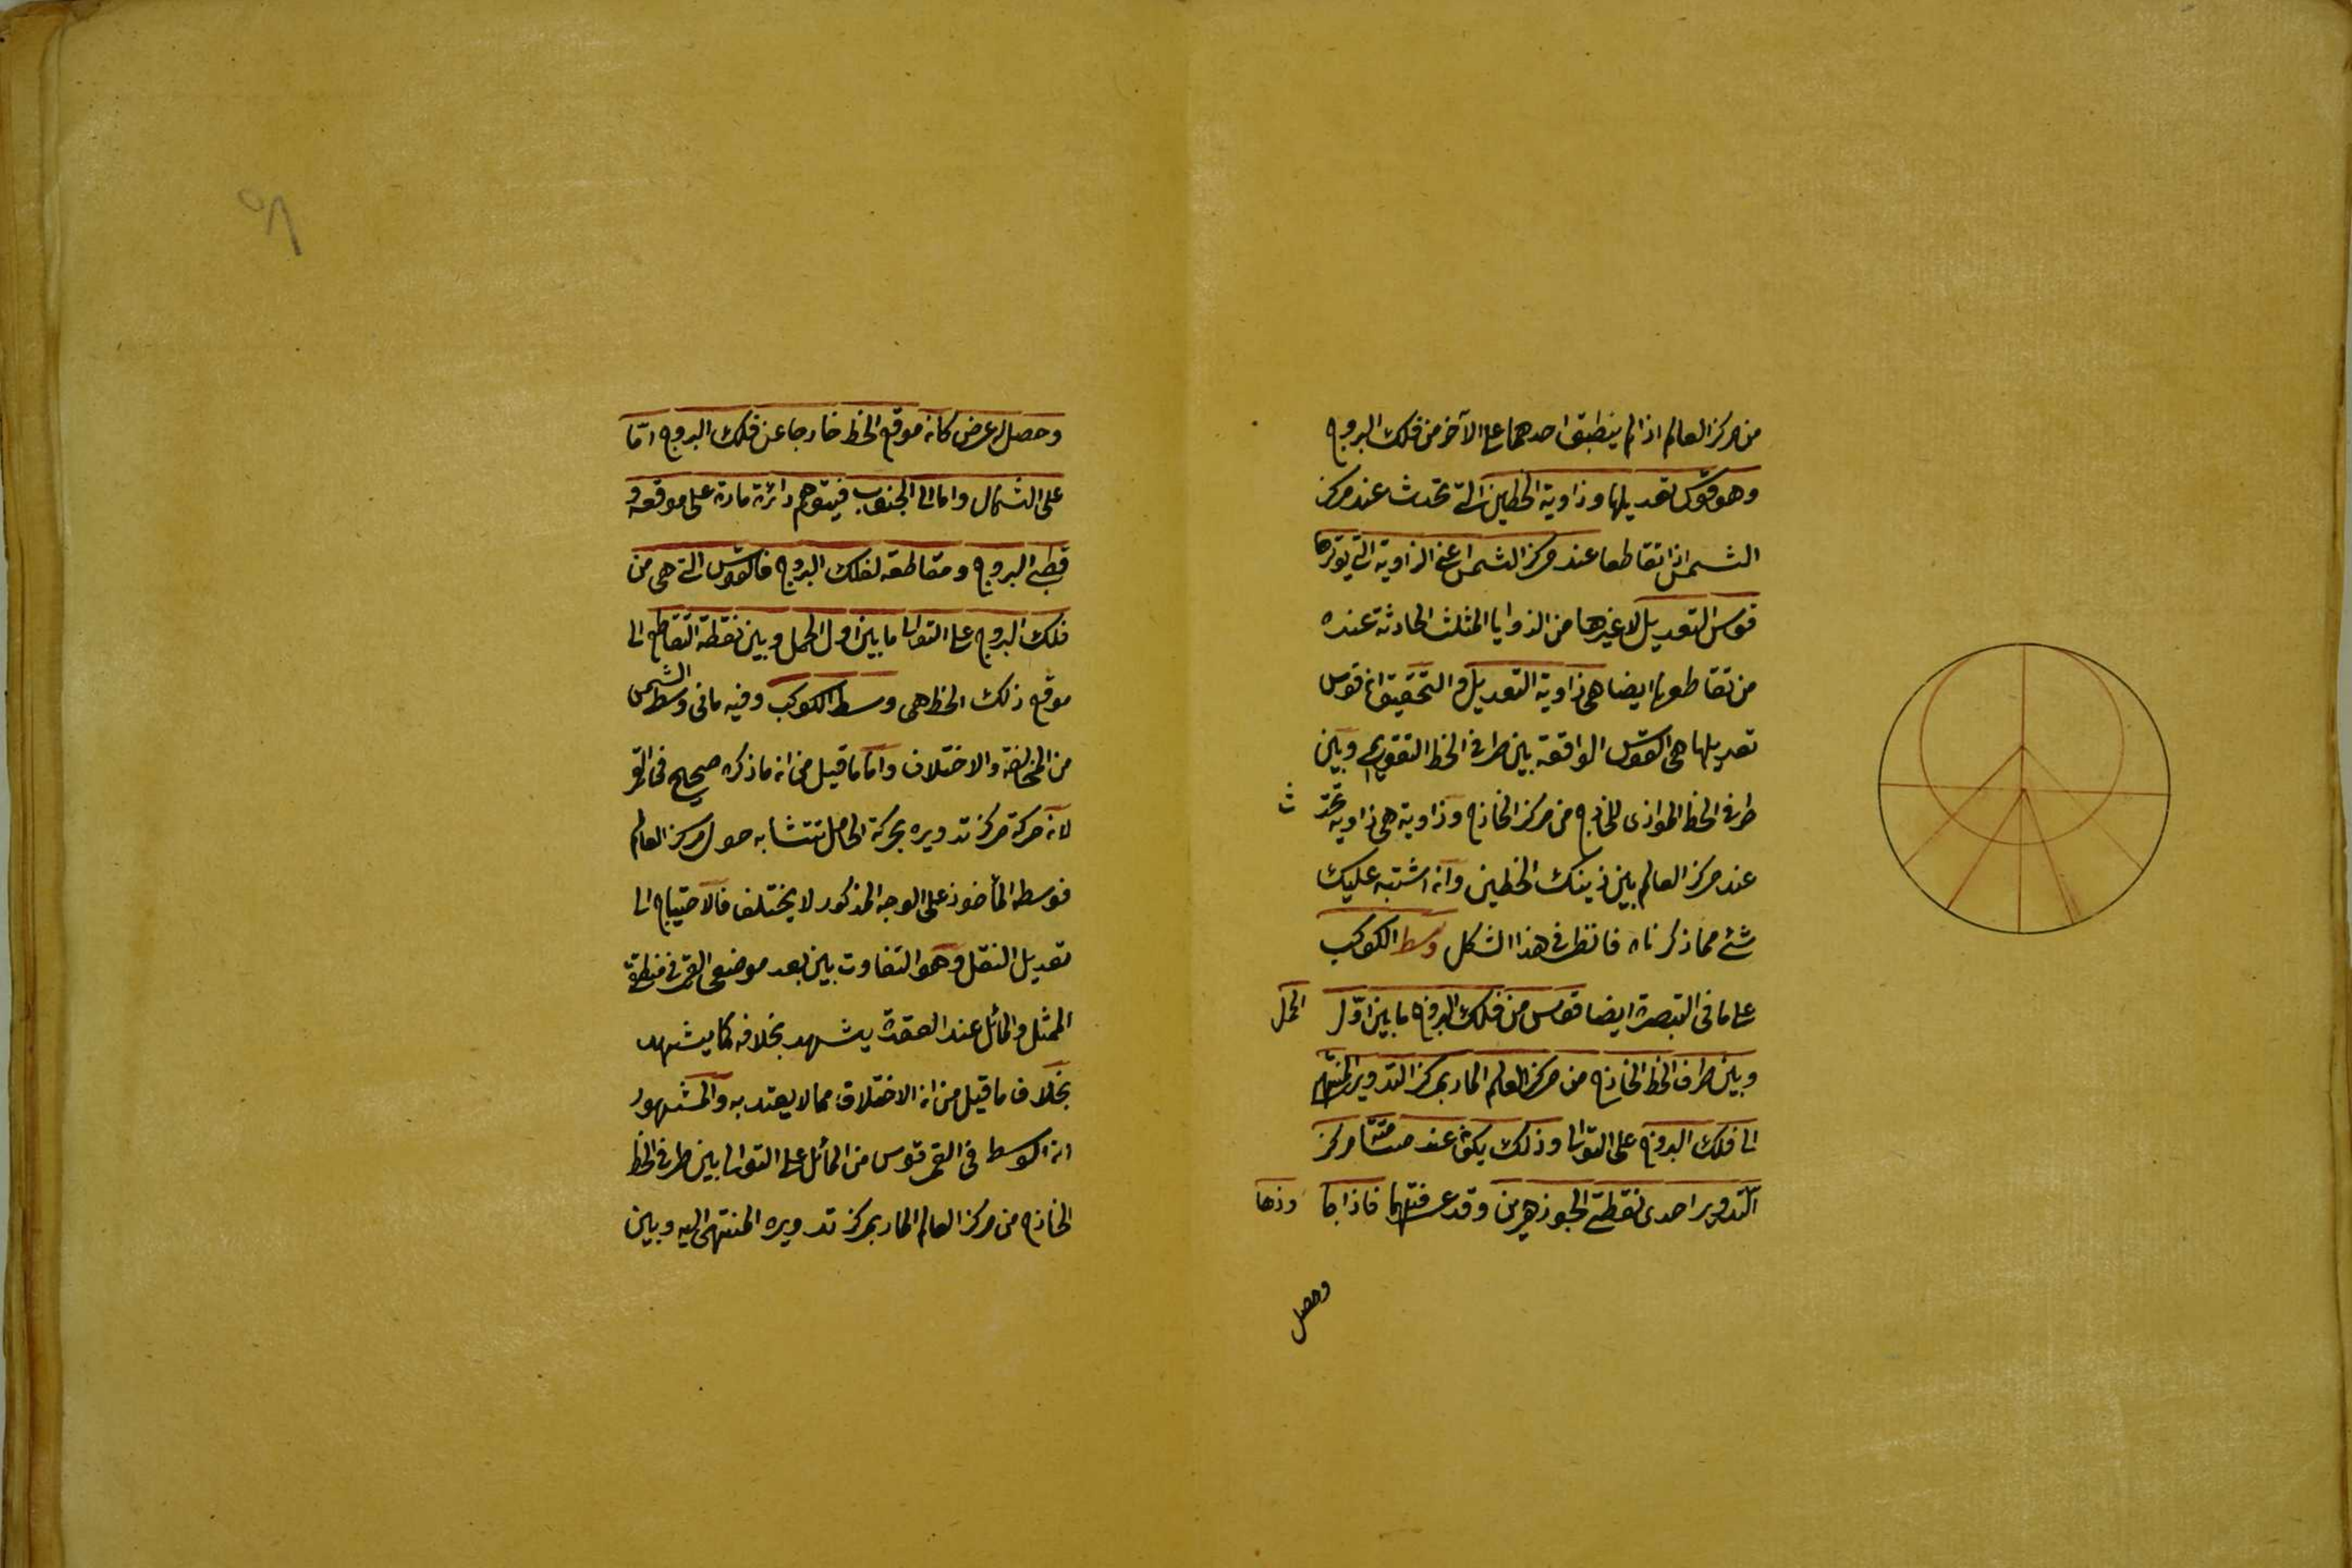 من مركز العالم اذا لم ينطبق احدهما على الآخر من فلك البروج
وهو قوس تعديلها وزاوية الخطين التى تحدث عند مركز
الشمس اذا تقاطعا عند مركز الشمس اعنى الزاوية التى يوترها
قوس التعديل لا غيرها من الزوايا المثلث الحادثة عنده
من تقاطعهما ايضا هى زاوية التعديل و التحقيق ان قوس
تعديلها هى القوس الواقعة بين طرفى الخط التقويمى وبين
طرفى الخط الموازى للخارج من مركز الخارج وزاوية هى زاوية تحدث
عند مركز العالم بين ذينك الخطين وان اشتبه عليك
شئ مما ذكرناه فانظر فى هذا الشكل وسط الكوكب
على ما فى التبصرة ايضا قوس من فلك البروج ما بين اوّل الحمل
وبين طرف الخط الخارج من مركز العالم المار بمركز التدوير المنتهى
الى فلك البروج على التوالى وذلك يكون عند مسامتة مركز
التدوير احدى نقطتى الجوزهرين وقد عرفتهما فاذا جاوزها
وحصل
وحصل له عرض كان موقع الخط خارجا عن فلك البروج امّا
على الشمال واما الى الجنوب فيتوهم دائرة مارة على موقعه و
قطبى البروج ومقاطعه لفلك البروج فالقوس التى هى من
فلك البروج على التوالى ما بين اول الحمل وبين نقطة التقاطع الى
موقع ذلك الخط هى وسط الكوكب وفيه ما فى وسط الشمس
من المخالفة والاختلاف واما ما قيل من ان ما ذكره صحيح فى القمر
لان حركة مركز تدويره بحركة الحامل تتشابه حول مركز العالم
فوسطه المأخوذ على الوجه المذكور لا يختلف فالاحتياج الى
تعديل النقل وهو التفاوت بين بعد موضعى القمر فى منطقتى
الممثل والمائل عند العقدة يشهد بخلافه كما يشهد
بخلاف ما قيل من ان الاختلاف مما لا يعتد به والمشهور
ان الوسط فى القمر قوس من المائل على التوالى بين طرفى الخط
الخارج من مركز العالم المار بمركز تدويره المنتهى اليه وبين